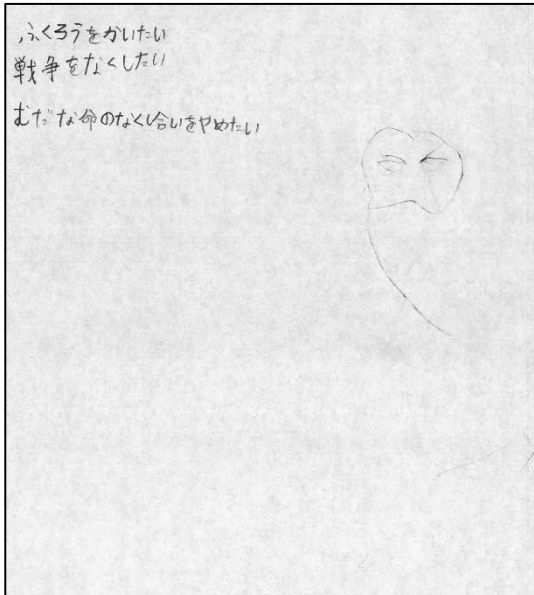 ふくろうをかいたい
戦争をなくしたい
むだな命のなくし合いをやめたい